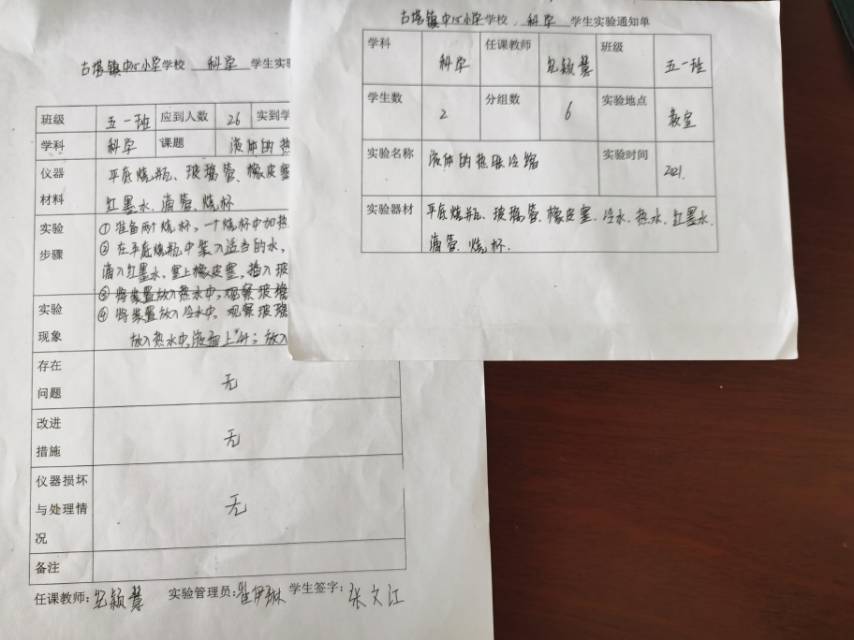 古塔镇中心小学学校 科学 学生实验通知单
学科 科学 任课教师 颖慧 班级 五一班
学生数 2 分组数 6 实验地点 教室
实验名称 液体的热胀冷缩 实验时间 2021.
实验器材 平底烧瓶、玻璃管、橡皮塞、冷水、热水、红墨水、
滴管、烧杯.
古塔镇中心小学学校 科学 学生实
班级 五一班 应到人数 26 实到学
学科 科学 课题 液体的热
仪器
材料
平底烧瓶、玻璃管、橡皮塞
红墨水、滴管、烧杯
实验
步骤
①准备两个烧杯，一个烧杯中加热
②在平底烧瓶中装入适当的水，
滴入红墨水，塞上橡皮塞，插入玻
③将装置放入热水中，观察玻璃
④将装置放入冷水中，观察玻璃
实验
现象
放入热水中，液面上升；放入
存在
问题
无
改进
措施
无
仪器损坏
与处理情
况
无
备注
任课教师：颖慧 实验管理员： 学生签字：张文江